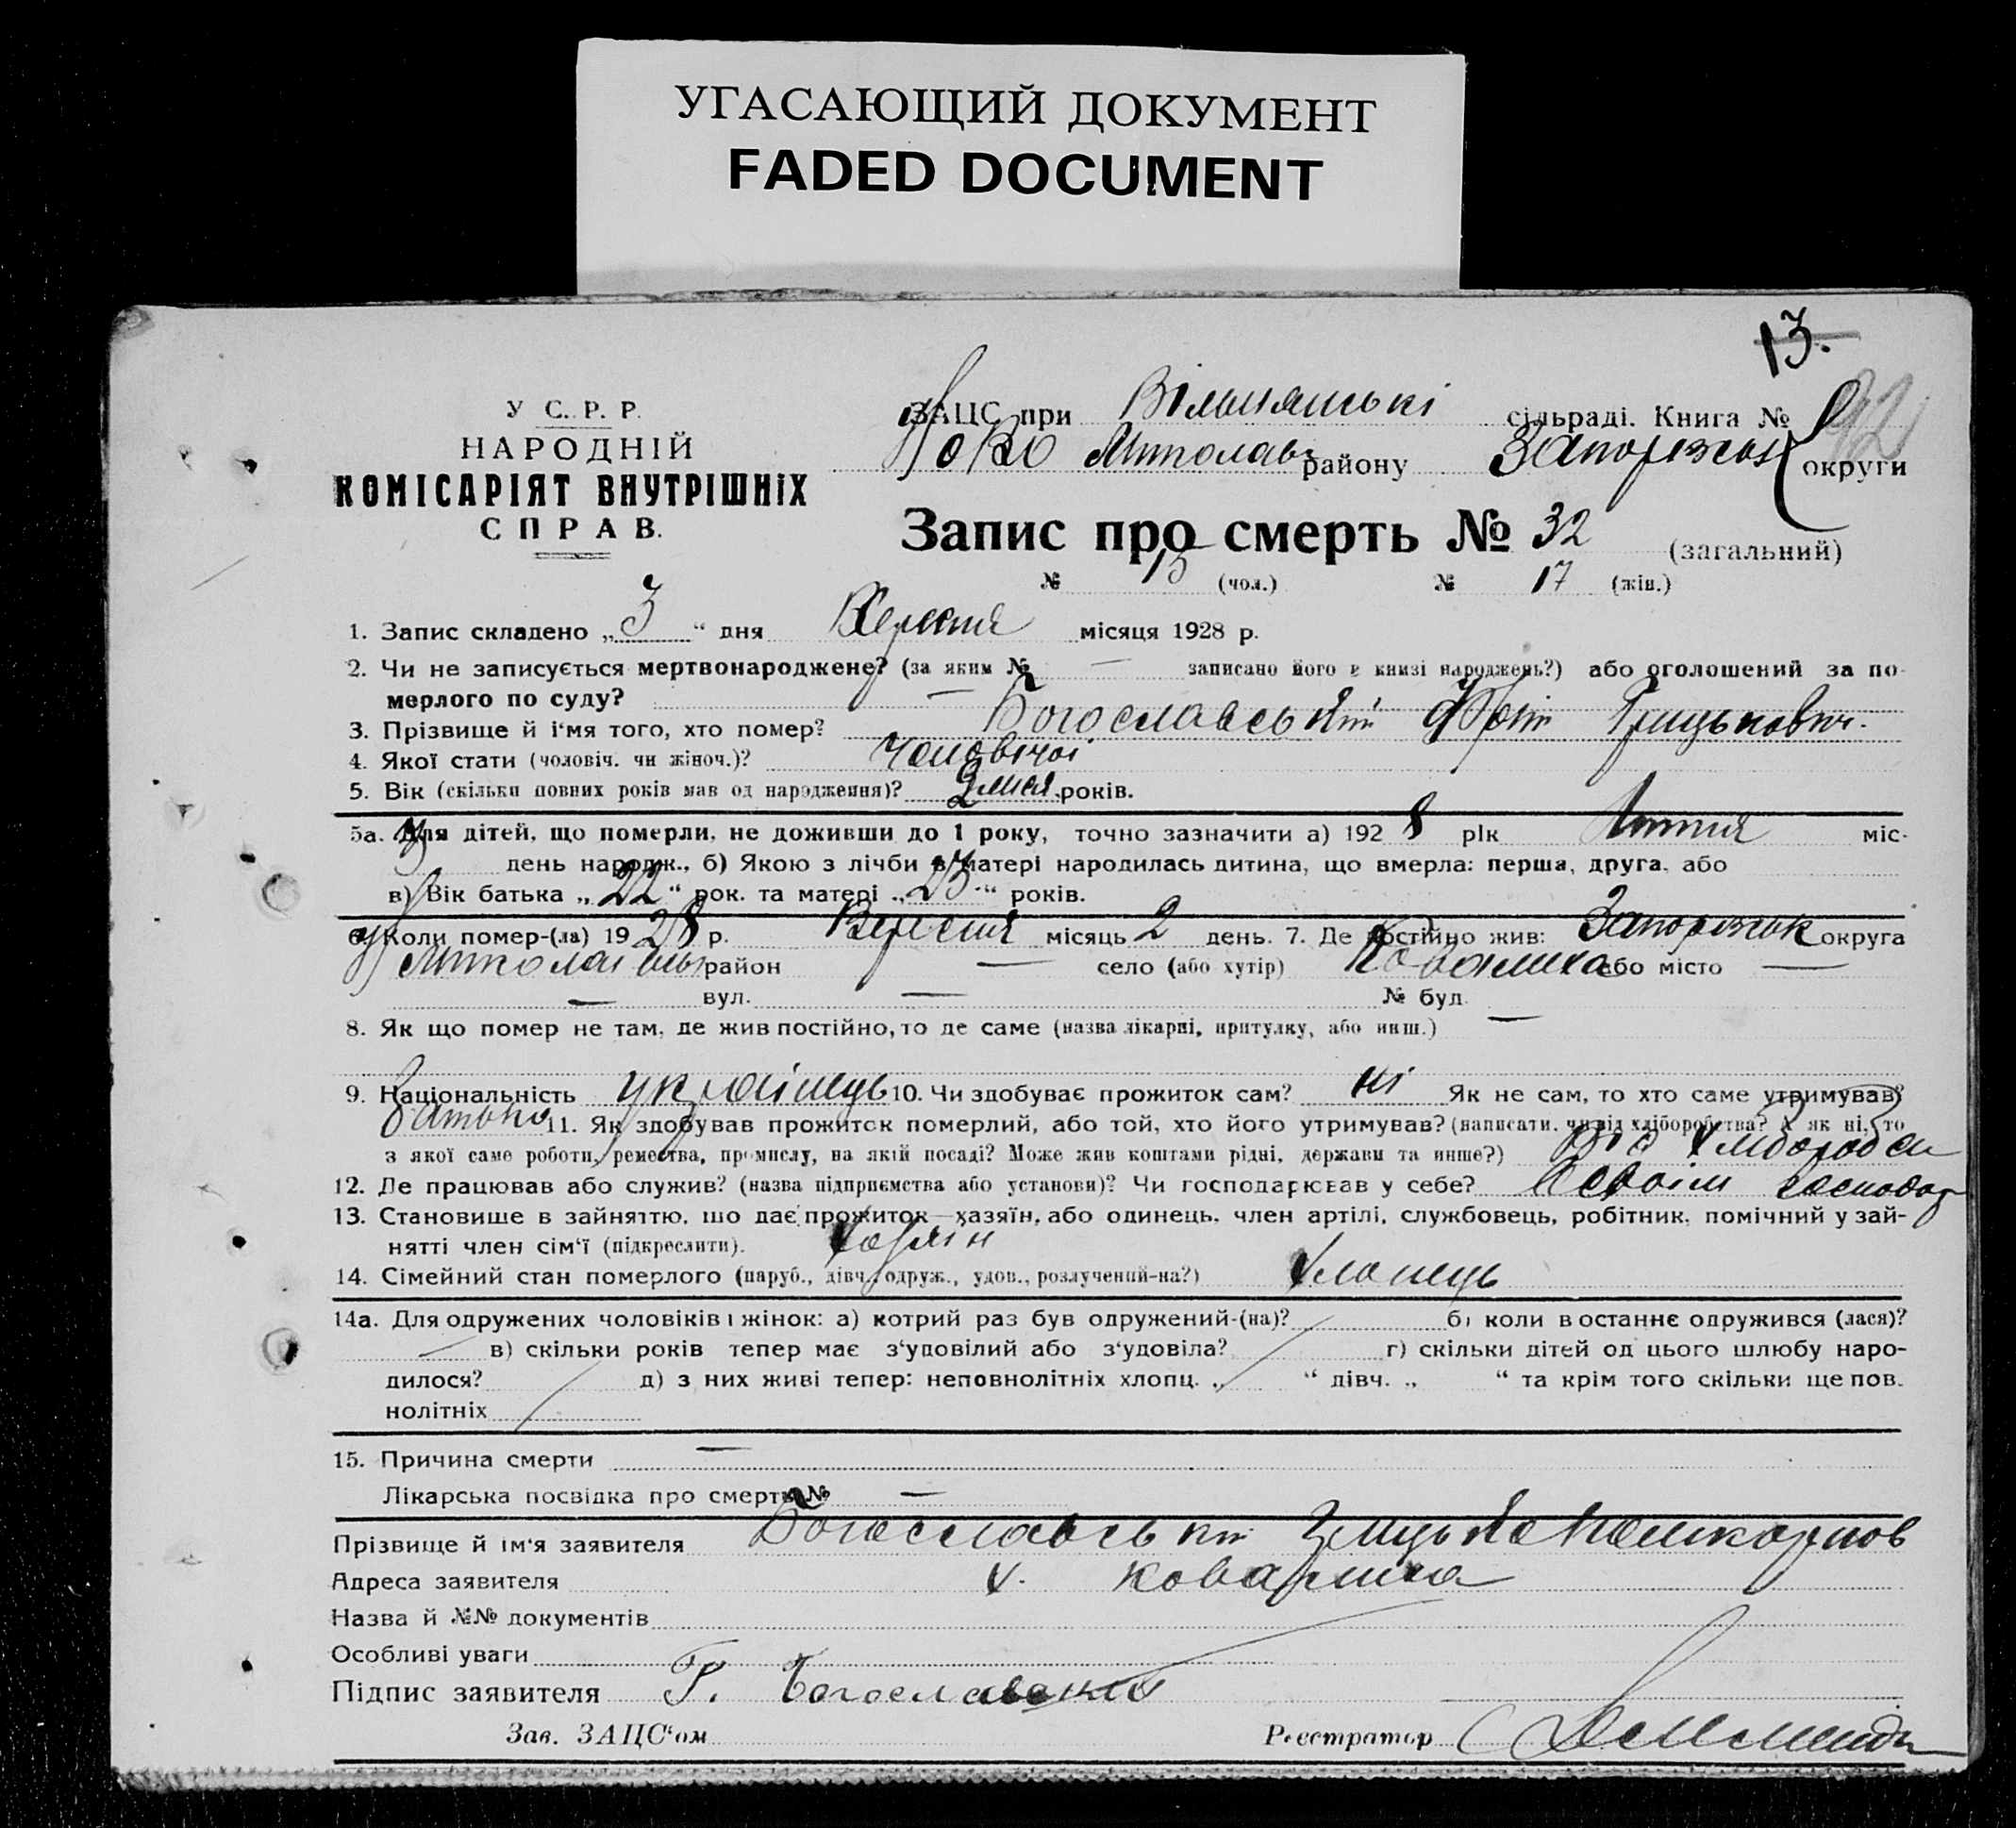 УГАСАЮЩИЙ ДОКУМЕНТ
FADED DOCUMENT
13.
92
У С. Р. Р.
НАРОДНІЙ
КОМІСАРІЯТ ВНУТРІШНІХ
СПРАВ.
ЗАЦС при Вільнянські сільраді. Книга №
Ново Миколаїв району Запорізьк округи
Запис про смерть № 32 (загальний)
№ 15 (чол.) № 17 (жін.)
1. Запис складено „ 3 “ дня Вересня місяця 1928 р.
2. Чи не записується мертвонароджене? (за яким № — записано його в книзі народжень?) або оголошений за по-
мерлого по суду? —
3. Прізвище й і‘мя того, хто помер? Богославський Грицькович.
4. Якої стати (чоловіч. чи жіноч.)? Чоловічої
5. Вік (скільки повних років мав од народження)? 2 міся. років.
5а. Для дітей, що померли, не доживши до 1 року, точно зазначити а) 1928 рік Липня міс-
3 день народж., б) Якою з лічби в матері народилась дитина, що вмерла: перша, друга, або
в) Вік батька „ 22 “ рок. та матері „ 23 “ років.
6. Коли помер-(ла) 1928 р. Вересня місяць 2 день. 7. Де постійно жив: Запорізьк округа
район — село (або хутір) або місто —
— вул. — № буд. —
8. Як що помер не там, де жив постійно, то де саме (назва лікарні, притулку, або инш.)
9. Національність українець 10. Чи здобуває прожиток сам? ні Як не сам, то хто саме утримував?
батько 11. Як здобував прожиток померлий, або той, хто його утримував? (написати, чи від хліборобства? А як ні, то
з якої саме роботи, ремества, промислу, на якій посаді? Може жив коштами рідні, держави та инше?) Від хлібороб
12. Де працював або служив? (назва підприємства або установи)? Чи господарював у себе? в своїм господар
13. Становище в зайняттю, що дає прожиток—хазяїн, або одинець, член артілі, службовець, робітник, помічний у зай-
нятті член сім‘ї (підкреслити). хазяїн
14. Сімейний стан померлого (паруб., дівч., одруж., удов., розлучений-на?) хлопець
14а. Для одружених чоловіків і жінок: а) котрий раз був одружений-(на)? б) коли в останнє одружився (лася)?
— в) скільки років тепер має з‘удовілий або з‘удовіла? г) скільки дітей од цього шлюбу наро-
дилося? д) з них живі тепер: неповнолітніх хлопц. „ “ дівч. „ “ та крім того скільки ще пов.
нолітніх
15. Причина смерти —
Лікарська посвідка про смерть № —
Прізвище й ім‘я заявителя Богославський Грицько
Адреса заявителя х.
Назва й №№ документів
Особливі уваги
Підпис заявителя Г. Богославский
Зав. ЗАЦС‘ом Реєстратор